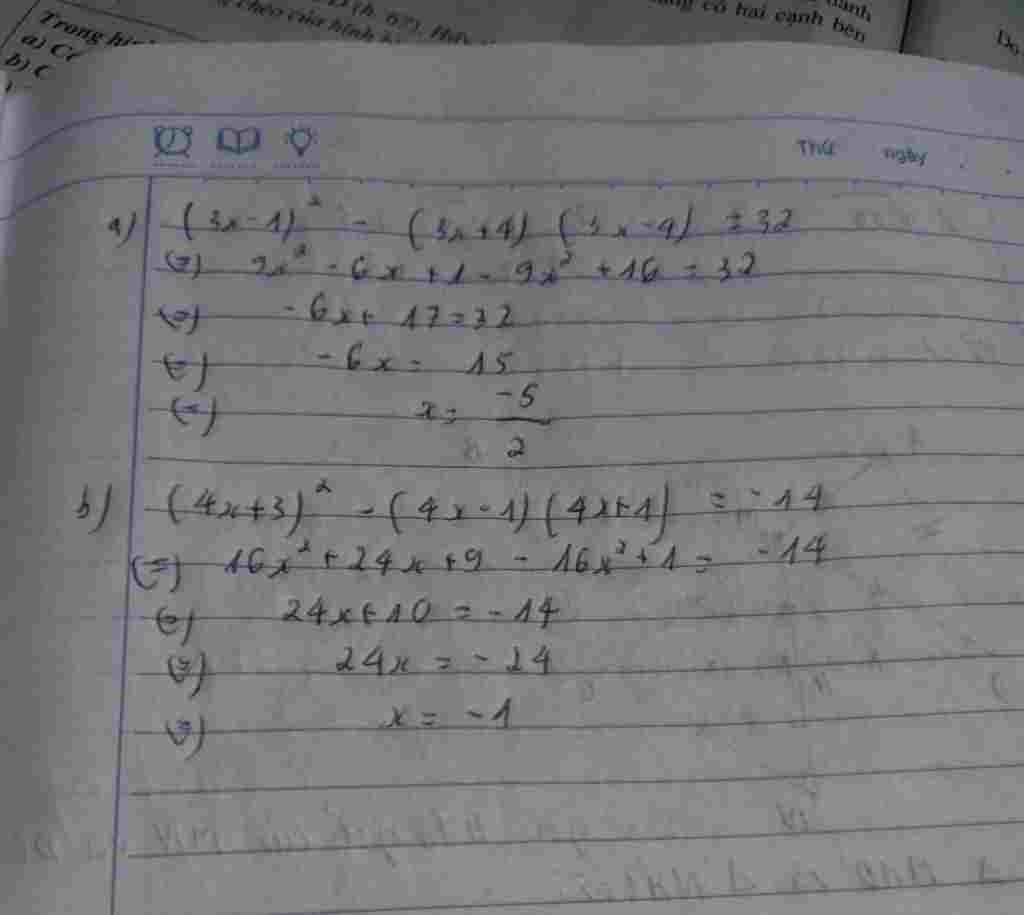 Trong hì
a) C
b) C
chéo của hình
có hai cạnh bên
Thứ ngày
a) (3x-1)² - (3x+4) (3x-4) = 32
(=) 9x² - 6x + 1 - 9x² + 16 = 32
(=) -6x + 17 = 32
(=) -6x = 15
(=) x = -5/2
b) (4x+3)² - (4x-1) (4x+1) = -14
(=) 16x² + 24x + 9 - 16x² + 1 = -14
(=) 24x + 10 = -14
(=) 24x = -24
(=) x = -1